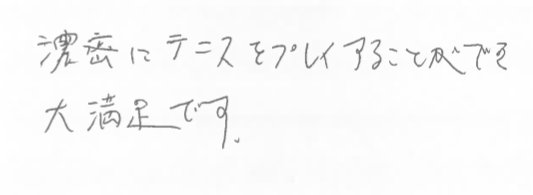 濃密にテニスをプレイすることができ
大満足です。